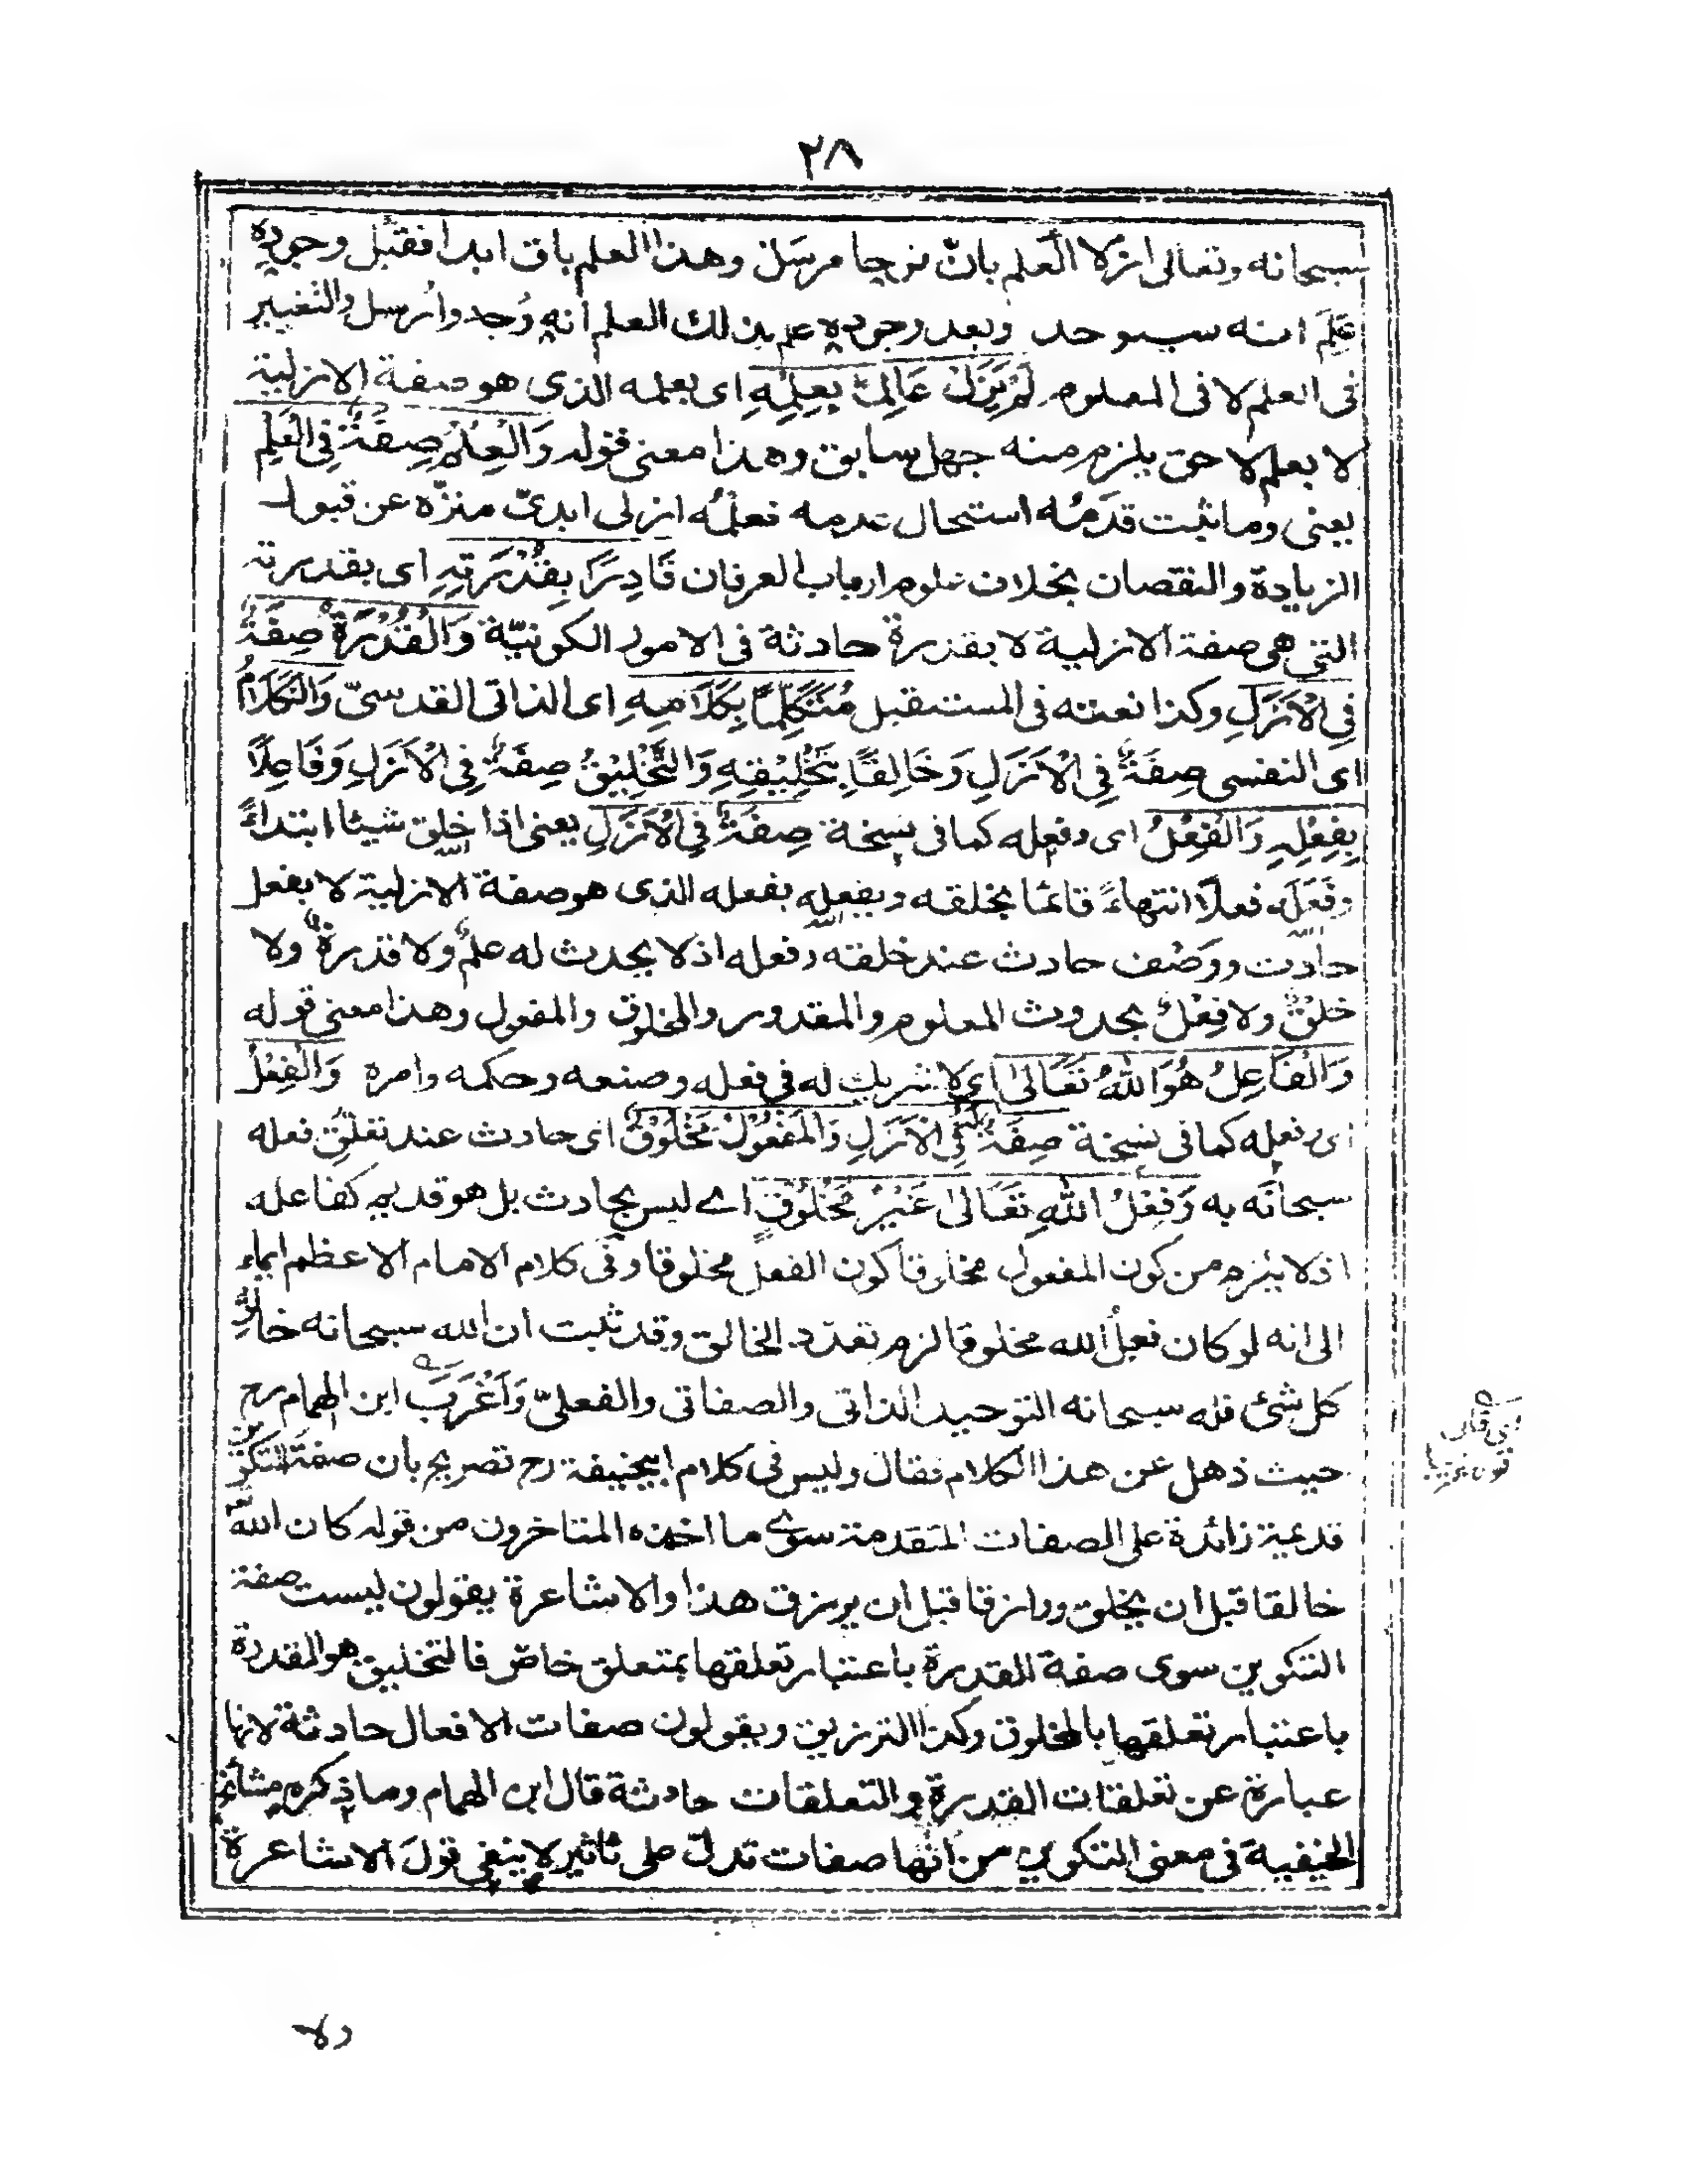 ٢٨
سبحانه وتعالى ازلا العلم بانّ نوحا مرسَل وهذا العلم باق ابدا فقبل وجوده
عَلِمَ انه سيوجد وبعد وجوده علم بذلك العلم انه وُجد واُرسل والتغيير
فى العلم لا فى المعلوم لَمْ يَزَلْ عَالِمًا بِعِلْمِهِ اى بعلمه الذى هو صفة الازلية
لا بعلم لاحق يلزم منه جهل سابق وهذا معنى قوله وَالْعِلْمُ صِفَةٌ فِى الْعِلْمِ
يعنى وما ثبت قدَمُه استحال عدمه فعلمُه ازلى ابدىّ منزّه عن قبول
الزيادة والنقصان بخلاف علوم ارباب العرفان قَادِرًا بِقُدْرَتِهِ اى بقدرته
التى هى صفة الازلية لا بقدرة حادثة فى الامور الكونيّة وَالْقُدْرَةُ صِفَةٌ
فِى الْاَزَلِ وكذا نعته فى المستقبل مُتَكَلِّمًا بِكَلَامِهِ اى الذاتى القدسىّ وَالْكَلَامُ
اى النفسى صِفَةٌ فِى الْاَزَلِ وَخَالِقًا بِتَخْلِيْقِهِ وَالتَّخْلِيْقُ صِفَةٌ فِى الْاَزَلِ وَفَاعِلًا
بِفِعْلِهِ وَالْفِعْلُ اى وفعله كما فى نسخة صِفَةٌ فِى الْاَزَلِ يعنى اذا خلق شيئا ابتداءً
وفَعَلَ فعلًا انتهاءً قائما بخلقه ويفعله بفعله الذى هو صفة الازلية لا بفعل
حادث ووَصْف حادث عند خلقه وفعله اذ لا يحدث له علمٌ ولا قدرةٌ ولا
خلقٌ ولا فِعْلٌ بحدوث المعلوم والمقدور والمخلوق والمفعول وهذا معنى قوله
وَالْفَاعِلُ هُوَ اللهُ تَعَالٰى اى لا شريك له فى فعله وصنعه وحكمه وامره وَالْفِعْلُ
اى وفعله كما فى نسخة صِفَةٌ فِى الْاَزَلِ وَالْمَفْعُوْلُ مَخْلُوْقٌ اى حادث عند تعلّق فعله
سبحانَه به وَفِعْلُ اللهِ تَعَالٰى غَيْرُ مَخْلُوْقٍ اے ليس بحادث بل هو قديم كفاعله
اذ لا يلزم من كون المفعول مخلوقا كون الفعل مخلوقا وفى كلام الامام الاعظم ايماء
الى انه لو كان فعلُ الله مخلوقا لزم تعدّد الخالق وقد ثبت ان الله سبحانه خالق
كل شئ فله سبحانه التوحيد الذاتى والصفاتى والفعلىّ وَاَغْرَبَ ابن الهمام رح
حيث ذهل عن هذا الكلام فقال وليس فى كلام ابيحنيفة رح تصريح بان صفة التكوين
قديمة زائدة على الصفات المتقدمة سوى ما اخذه المتاخرون من قوله كان الله
خالقا قبل ان يخلق ورازقا قبل ان يرزق هذا والاشاعرة يقولون ليست صفة
التكوين سوى صفة القدرة باعتبار تعلقها بمتعلق خاصّ فالتخليق هو القدرة
باعتبار تعلقها بالمخلوق وكذا الترزيق ويقولون صفات الافعال حادثة لانها
عبارة عن تعلقات القدرة والتعلقات حادثة قال ابن الهمام وما ذكره مشائخ
الحنفية فى معنى التكوين من انها صفات تدلّ على تاثير لا ينفى قولَ الاشاعرة
ولا